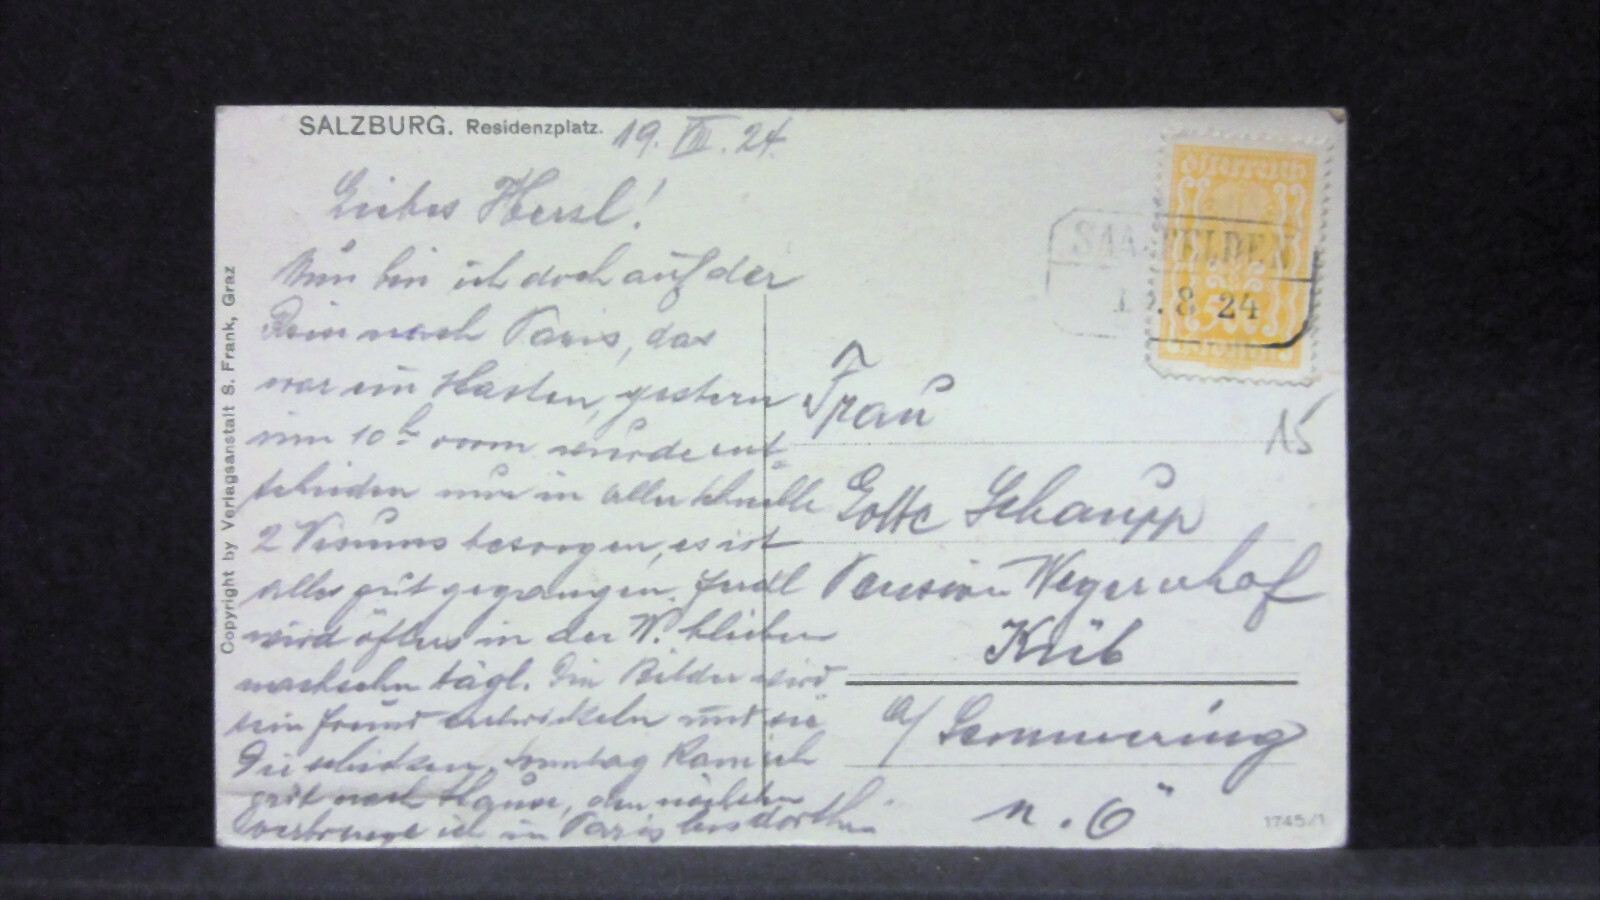 SALZBURG. Residenzplatz.
19. VIII. 24.
Liebes Hersl!
Nun bin ich doch auf der
Reise nach Paris, das
war ein Hasten, gestern
um 10h vorm wurde ent-
schieden nun in aller schnelle
2 Visums besorgen, es ist
alles gut gegangen.
wird öfters in der W. bleiben
nachsehn tägl. Die Bilder wird
sein Freund entwickeln und sie
Dir schicken, Sonntag kam ich
gut nach Hause, den nächsten
verbringe ich in Paris
Copyright by Verlagsanstalt S. Frank, Graz
Österreich
500
Kronen
SAALFELDEN
.8 24
15
Frau
Lotte Schaupp
Pension Wegerohof
Küb
a/ Semmering
N.Ö
1745/1